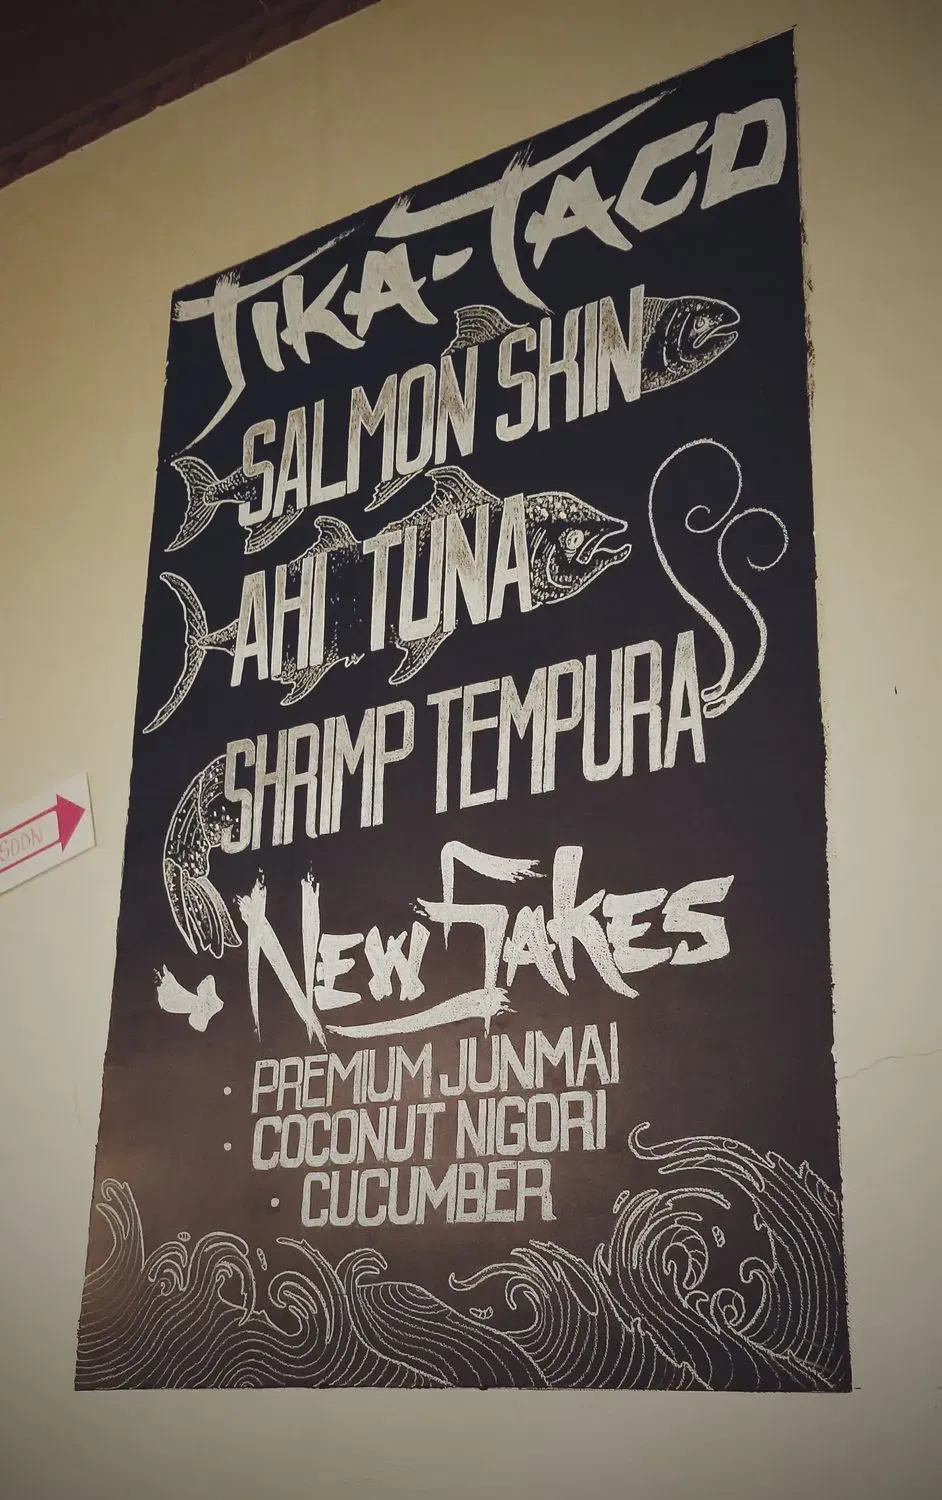 TIKA-TACO
SALMON SKIN
AHI TUNA
SHRIMP TEMPURA
NEW SAKES
• PREMIUM JUNMAI
• COCONUT NIGORI
• CUCUMBER
SOON